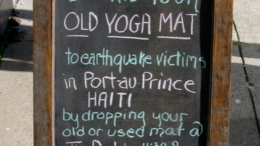 YOUR
OLD YOGA MAT
to earthquake victims
in Port-au-Prince
HAITI
by dropping your
old or used mat @